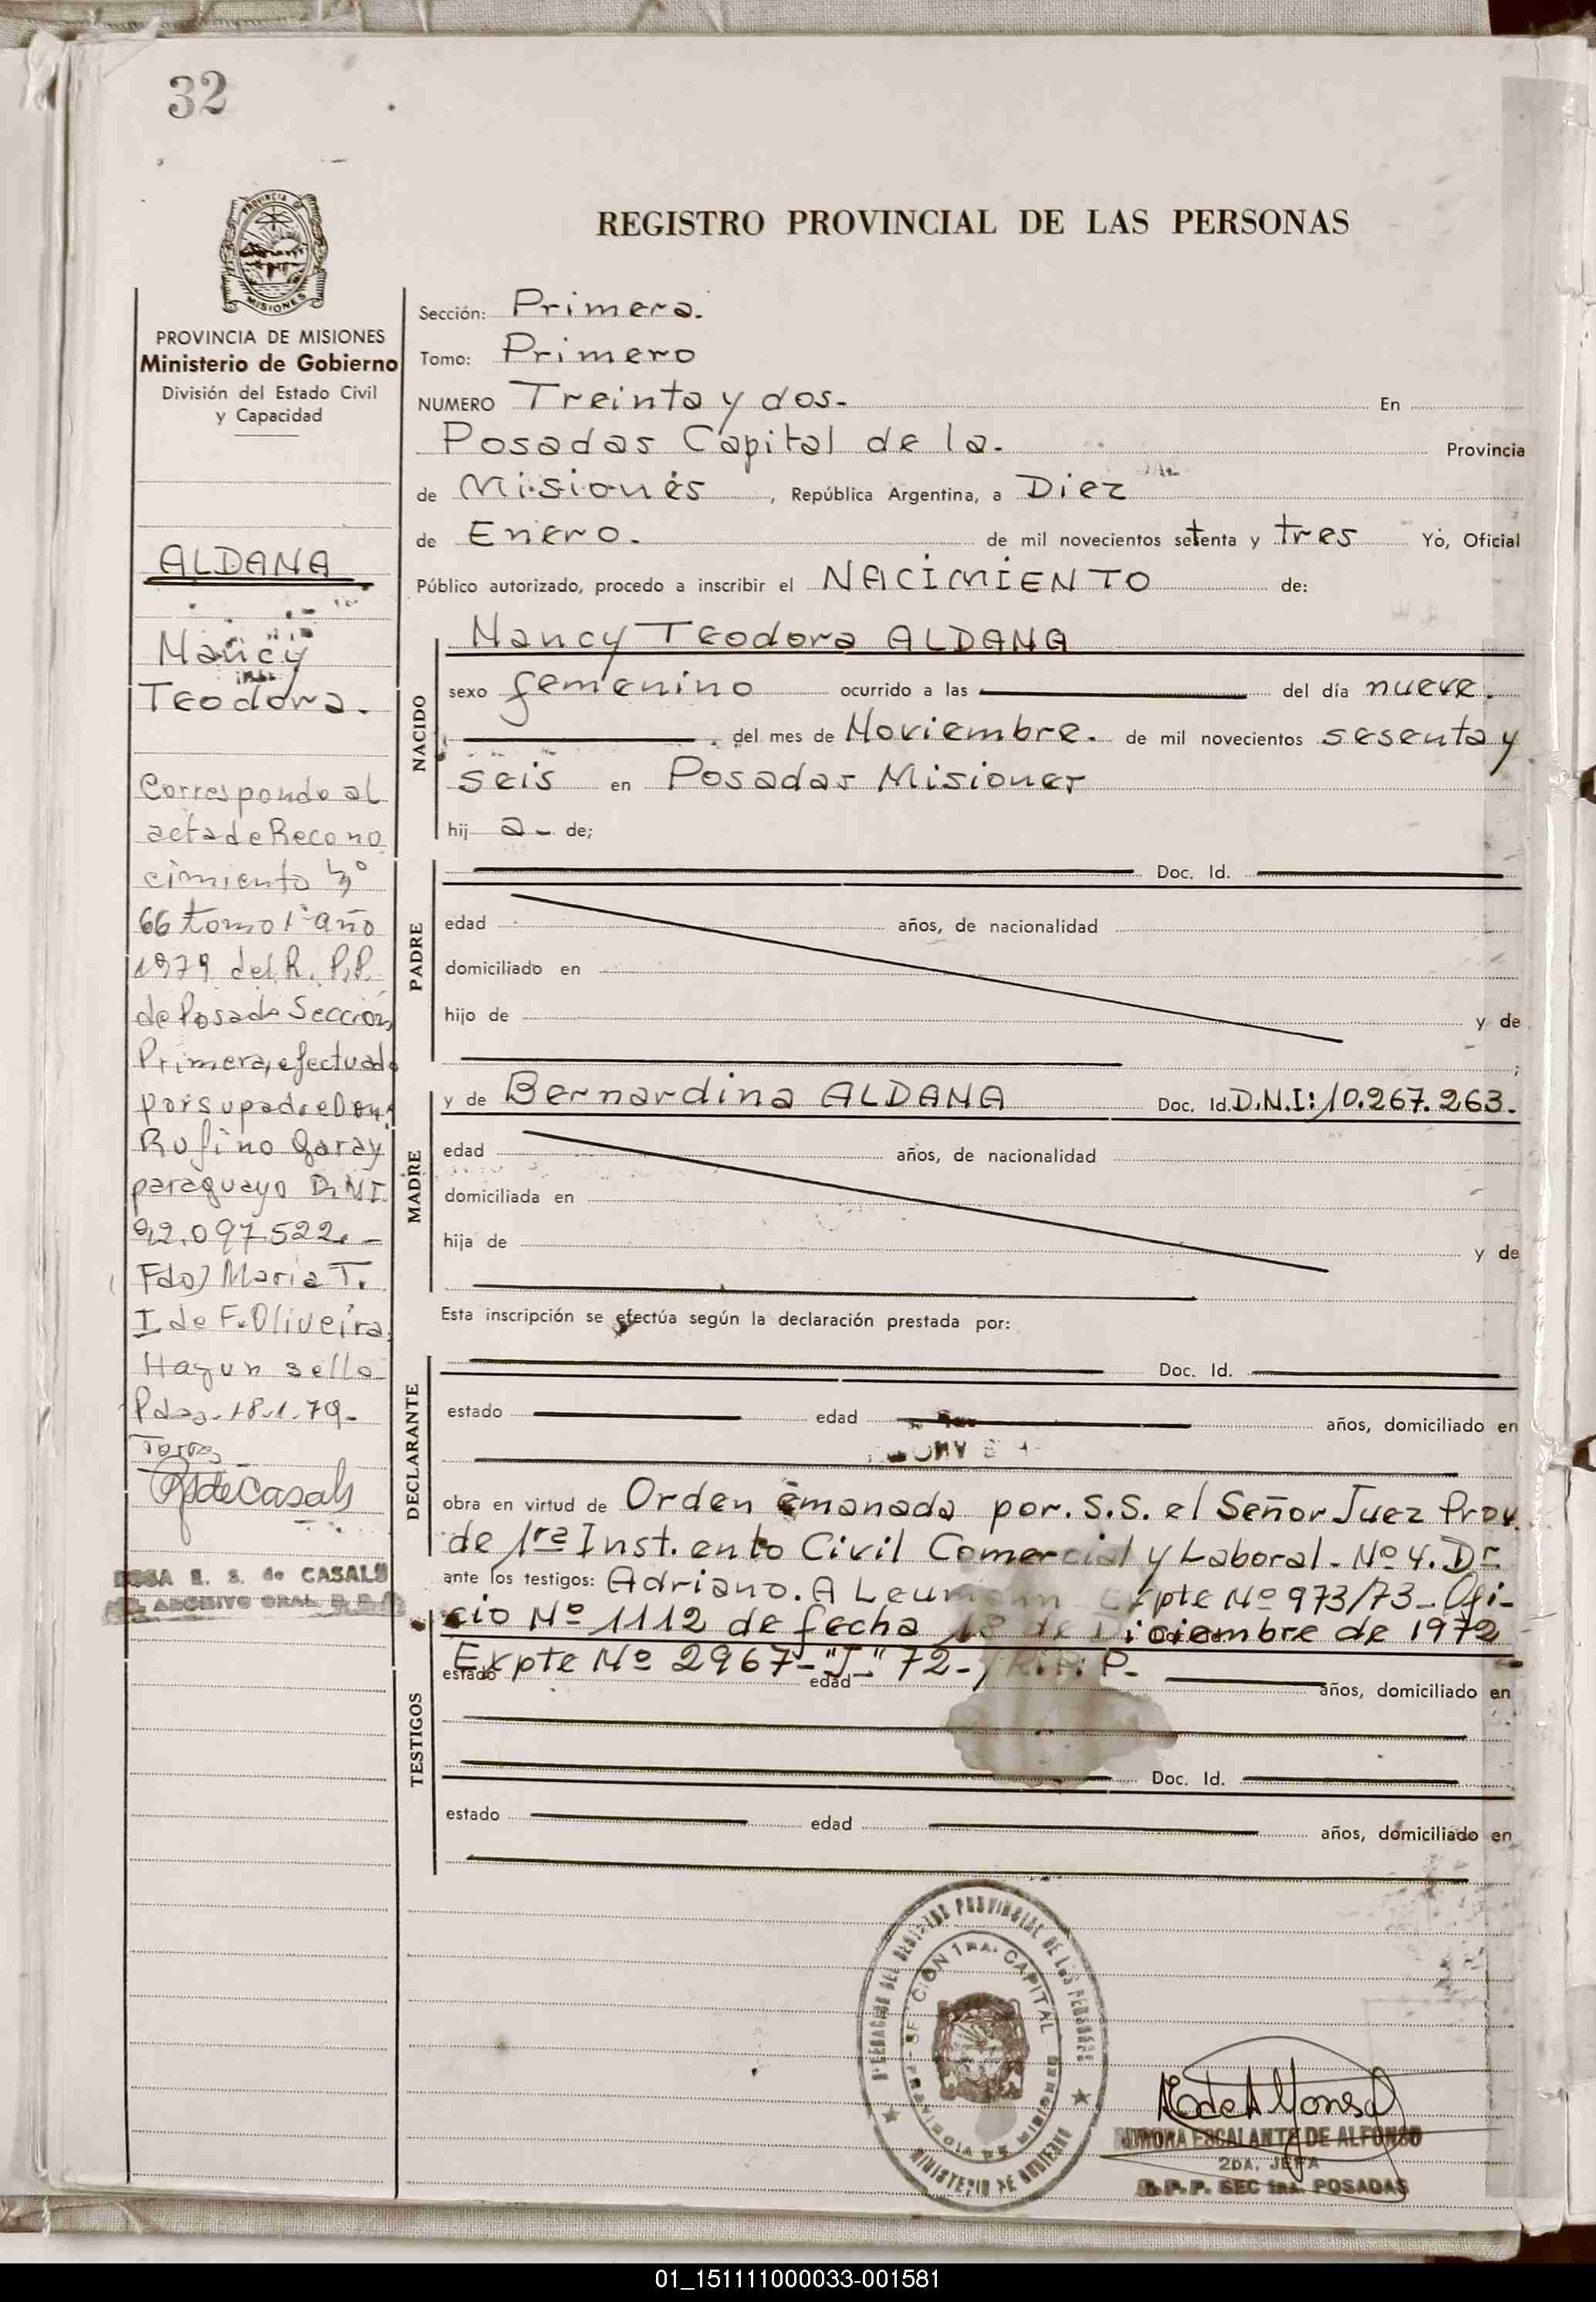 32
PROVINCIA DE
MISIONES
REGISTRO PROVINCIAL DE LAS PERSONAS
PROVINCIA DE MISIONES
Ministerio de Gobierno
División del Estado Civil
y Capacidad
ALDANA
Nancy
Teodora.
Corresponde al
acta de Recono
cimiento Nº
66 tomo 1º año
1979 del R. P.P.
de Posada Sección
Primera, efectuado
por su padre Don
Rufino Garay
paraguayo D.N.I.
92.097.522.-
Fdo) Maria T.
I de F. Oliveira.
Hay un sello
Pdas. 18-1-79-
RSdeCasals
ROSA E. S. de CASALS
Sección: Primera.
Tomo: Primero
NUMERO Treinta y dos- En
Posadas Capital de la. Provincia
de Misiones , República Argentina, a Diez
de Enero. de mil novecientos setenta y tres Yo, Oficial
Público autorizado, procedo a inscribir el NACIMIENTO de:
NACIDO
Nancy Teodora ALDANA
sexo femenino ocurrido a las del día nueve.
del mes de Noviembre. de mil novecientos sesenta y
seis en Posadas Misiones
hij a- de;
PADRE
Doc. Id.
edad años, de nacionalidad
domiciliado en
hijo de y de
;
MADRE
y de Bernardina ALDANA Doc. Id. D.N.I: 10.267.263-
edad años, de nacionalidad
domiciliada en
hija de y de
Esta inscripción se efectúa según la declaración prestada por:
DECLARANTE
Doc. Id.
estado edad años, domiciliado en
obra en virtud de Orden emanada por. S.S. el Señor Juez Prov.
de 1ra Inst. en lo Civil Comercial y Laboral- Nº 4. Dr
ante los testigos: Adriano. A Leumann Expte Nº 973/73- Ofi-
cio Nº 1112 de fecha 18 de Diciembre de 1972
Expte Nº 2967-"J-"72-/R.P.P-
TESTIGOS
estado edad años, domiciliado en
Doc. Id.
estado edad años, domiciliado en
DEL REGISTRO PROVINCIAL DE LAS PERSONAS
SECCION 1RA. CAPITAL
PROVINCIA DE MISIONES
MINISTERIO DE GOBIERNO
AEdeAlfonso
AURORA ESCALANTE DE ALFONSO
2DA. JEFA
R.P.P. SEC 1ra. POSADAS
01_151111000033-001581